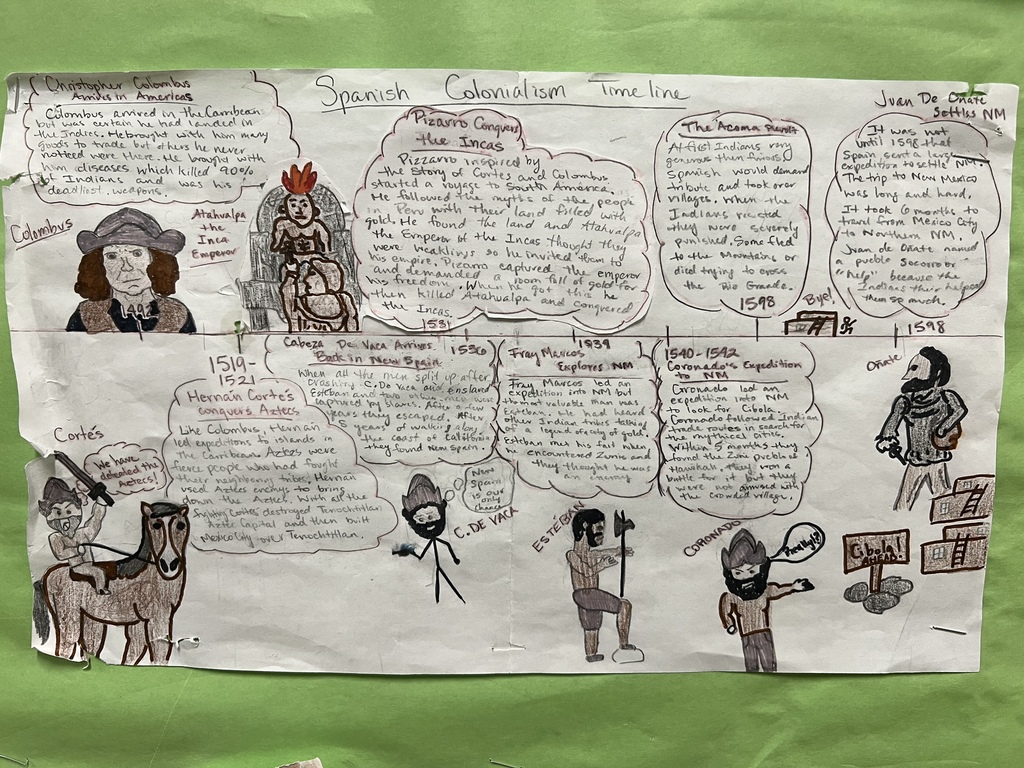 Spanish Colonialism Timeline
Christopher Colombus
Arrives in Americas
Colombus arrived in the Carribean
but was certain he had landed in
the Indies. He brought with him many
goods to trade but others he never
noticed were there. He brought with
him diseases which killed 90%
of Indians and was his
deadliest weapons.
Colombus
1492
Atahualpa
the
Inca
Emperor
Pizarro Conquers
the Incas
Pizzarro inspired by
the story of Cortes and Colombus
started a voyage to South America.
He followed the myths of the people
in Peru with their land filled with
gold. He found the land and Atahualpa
the Emperor of the Incas thought they
were weaklings so he invited them to
his empire. Pizarro captured the emperor
and demanded a room full of gold for
his freedom. When he got this he
then killed Atahualpa and conquered
the Incas.
1531
The Acoma Revolt
At first Indians very
generous then furious.
Spanish would demand
tribute and took over
villages. When the
Indians
they were severely
punished. Some fled
to the Mountains or
died trying to cross
the Rio Grande.
1598
Bye!
Juan De Oñate
Settles NM
It was not
until 1598 that
Spain sent a large
expedition to settle NM.
The trip to New Mexico
was long and hard.
It took 6 months to
travel from Mexico City
to Northern NM.
Juan de Oñate named
a pueblo Socorro or
"help" because the
Indians there helped
them so much.
1598
1519-
1521
Hernan Cortés
conquers Aztecs
Like Colombus, Hernan
led expeditions to islands in
the Carribean. Aztecs were
fierce people who had fought
their neighboring tribes, Hernan
used Aztecs enemys to bring
down the Aztecs. With all the
fighting Cortes destroyed Tenochtitlan
Aztec Capital and then built
Mexico City over Tenochtitlan.
Cortés
We have
defeated the
Aztecs!
Cabeza De Vaca Arrives
Back in New Spain
1536
When all the men split up after
crashing C. De Vaca and
Esteban and two other men were
captured by
years they escaped. After
8 years of walking along
the coast of California
they found New Spain.
New
Spain
is our
only
chance
C. DE VACA
1539
Fray Marcos
Explores NM
Fray Marcos led an
expedition into NM but
the most valuable man was
Esteban. He had heard
other Indian tribes talking
of a legend of a city of gold.
Esteban met his fait when
he encountered Zunis and
they thought he was
an enemy
ESTÉBAN
1540-1542
Coronado's Expedition
to NM
Coronado led an
expedition into NM
to look for Cibola
Coronado followed Indian
trade routes in search for
the mythical cities.
Within 5 months they
found the Zuni pueblo of
Hawikuh. They won a
battle for it but they
were not amused with
the crowded village.
CORONADO
Really!?
Cibola!
Oñate